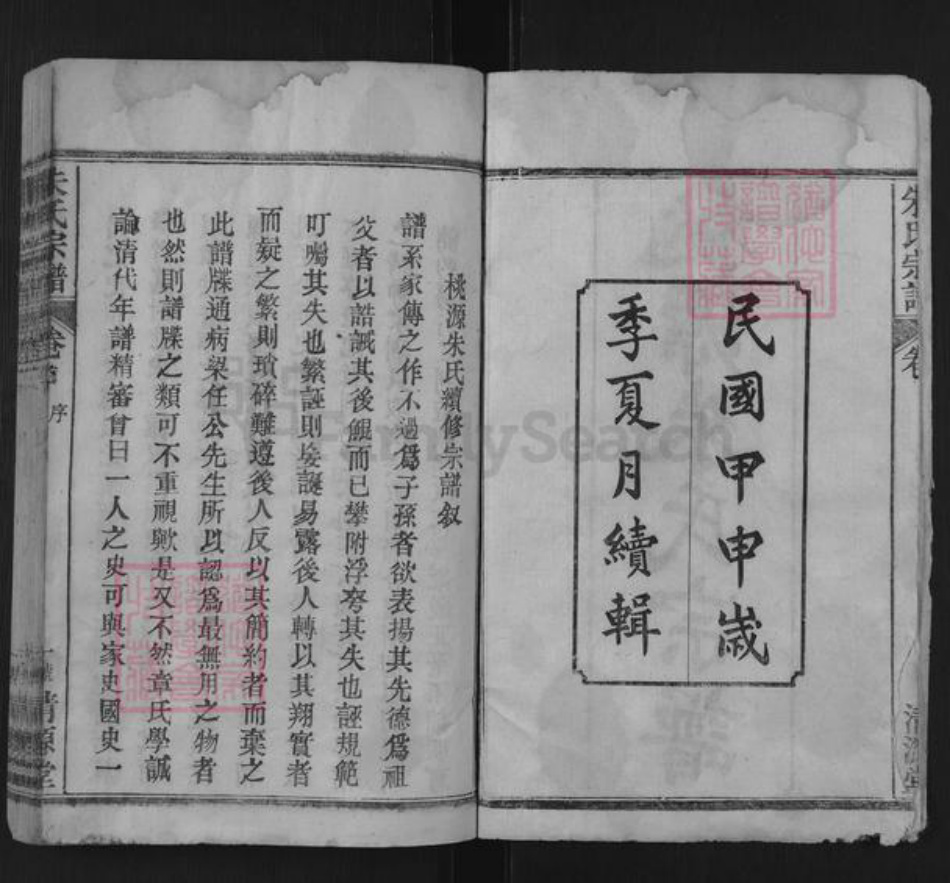 朱氏宗譜
卷
清源堂
民國甲申歲
季夏月續輯
桃源朱氏續修宗譜叙
譜系家傳之作不過爲子孫者欲表揚其先德爲祖
父者以誥誡其後餛而已攀附浮夸其失也誣規範
叮囑其失也繁誣則妄誕易露後人轉以其翔實者
而疑之繁則瑣碎難遵後人反以其簡約者而棄之
此譜牒通病梁任公先生所以認爲最無用之物者
也然則譜牒之類可不重視歟是又不然章氏學誠
論清代年譜精審曾曰一人之史可與家史國史一
朱氏宗譜
卷首
序
一
清源堂
FamilySearch